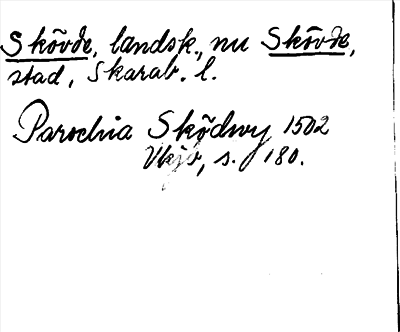 Skövde, landsk., nu Skövde,
stad, Skarab. l.
Parochia Sködwy 1502
s. 180.